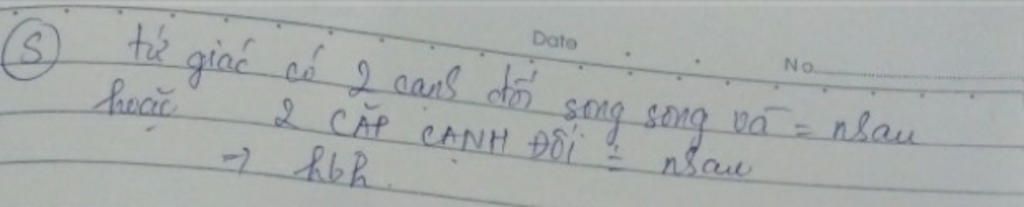 Date No.
(S) tứ giác có 2 cạnh đối song song và = nhau
hoặc 2 CẶP CẠNH ĐỐI = nhau
→ hbh.